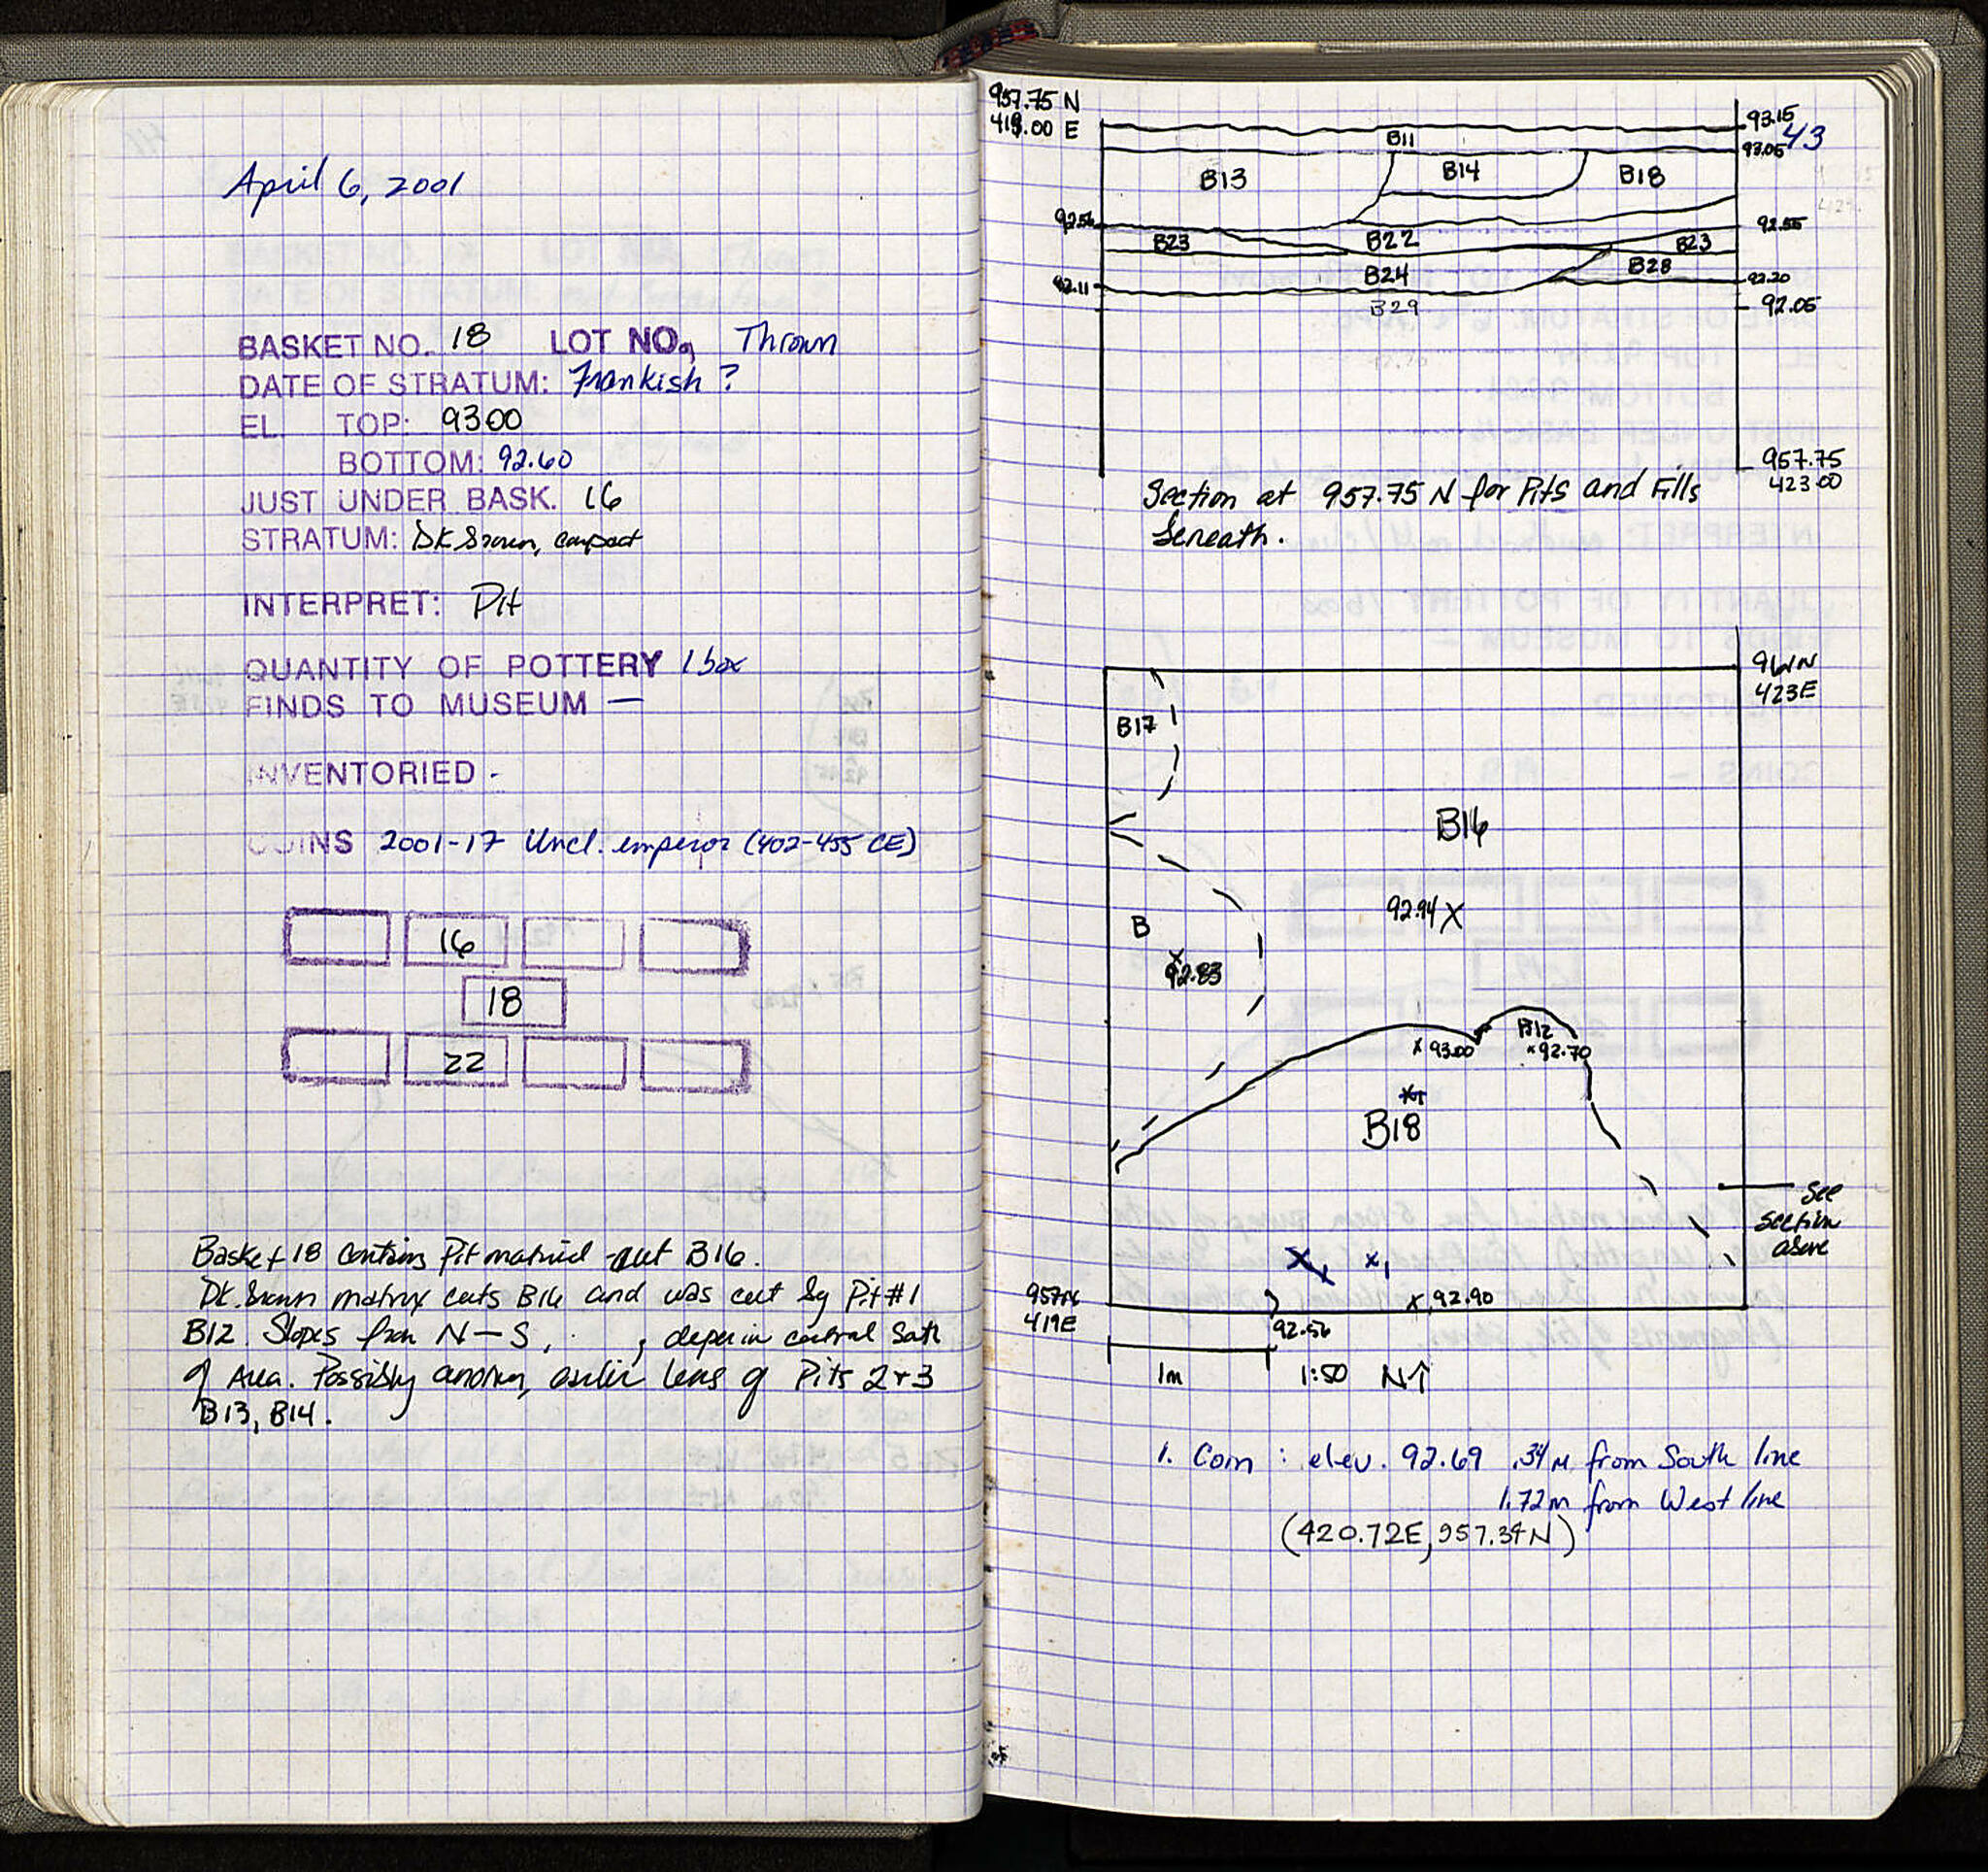 April 6, 2001
BASKET NO. 18 LOT NO. Thrown
DATE OF STRATUM: Frankish ?
EL. TOP: 93.00
BOTTOM: 92.60
JUST UNDER BASK. 16
STRATUM: DK Brown, compact
INTERPRET: Pit
QUANTITY OF POTTERY 1 box
FINDS TO MUSEUM —
INVENTORIED -
COINS 2001-17 Uncl. emperor (402-455 CE)
16
18
22
Basket 18 contains Pit material - cut B16.
Dk. Brown matrix cuts B16 and was cut by Pit #1
B12. Slopes from N-S, , deeper in central South
of Area. Possibly another, earlier lens of Pits 2+3
B13, B14.
957.75 N
419.00 E
93.15
43
93.05
B11
B13
B14
B18
92.56
92.55
B23
B22
B23
B24
B28
92.11
92.20
B29
92.05
957.75
423.00
Section at 957.75 N for Pits and Fills
beneath.
961N
423E
B17
B16
92.94 X
B
X
92.83
B12
x 93.00
x 92.70
B18
See
section
above
X1
x1
957N
419E
x 92.90
92.56
1m
1:50 N↑
1. Coin : elev. 92.69 .34m from South line
1.72m from West line
(420.72E, 957.34N)